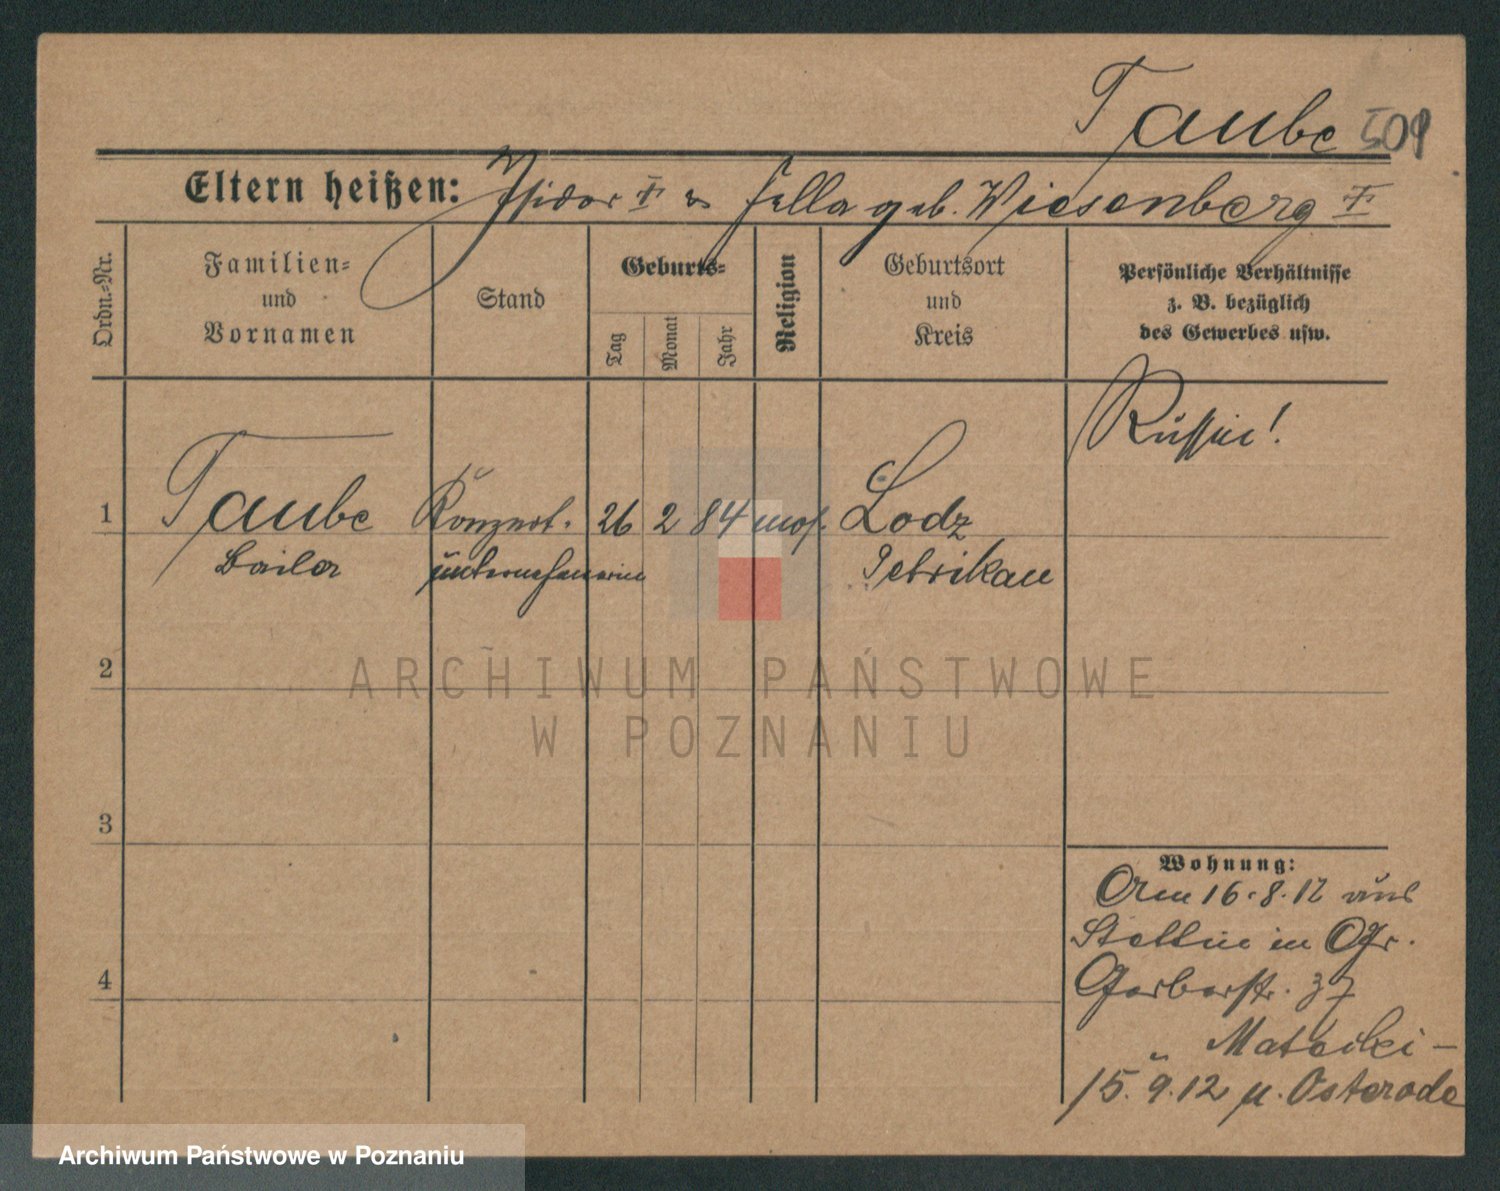 Taube 509
Eltern heißen: Isidor † u Hella geb. Wiesenberg †
Ordn.-Nr.
Familien- und Vornamen
Stand
Geburts-
Tag
Monat
Jahr
Religion
Geburtsort und Kreis
Persönliche Verhältnisse z. B. bezüglich des Gewerbes usw.
Russin!
1 Taube Konzert- 26 2 84 mos. Lodz
Baila unternehmerin Petrikau
2
3
4
Wohnung:
Am 16.8.12 aus
Stettin in Gr.
Gerberstr. 37
15.9.12 n. Osterode
ARCHIWUM PAŃSTWOWE
W POZNANIU
Archiwum Państwowe w Poznaniu